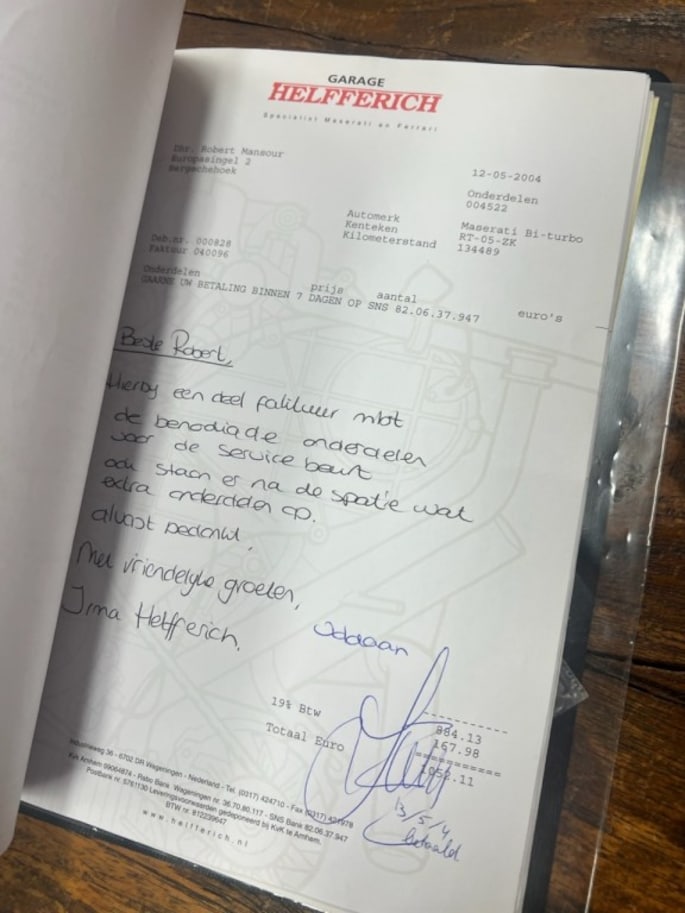 GARAGE
HELFFERICH
Specialist Maserati en Ferrari
Dhr. Robert Mansour
Europasingel 2
Bergschehoek
12-05-2004
Onderdelen
004522
Automerk Maserati Bi-turbo
Kenteken RT-05-ZK
Kilometerstand 134489
Deb.nr. 000828
Faktuur 040096
Onderdelen prijs aantal euro's
GAARNE UW BETALING BINNEN 7 DAGEN OP SNS 82.06.37.947
Beste Robert,
Hierby een deel faktuur mbt
de benodigde onderdelen
voor de service beurt
ook staan er na de spatie wat
extra onderdelen op.
alvast bedankt,
Met vriendelyke groeten,
Irma Helfferich.
Voldaan
884.13
19% Btw 167.98
Totaal Euro 1052.11
13/5/4
betaald
Industrieweg 36 - 6702 DR Wageningen - Nederland - Tel. (0317) 424710 - Fax (0317) 421978
KvK Arnhem 09064874 - Rabo Bank Wageningen nr. 36.70.80.117 - SNS Bank 82.06.37.947
Postbank nr. 5761130 Leveringsvoorwaarden gedeponeerd bij KvK te Arnhem.
BTW nr. 812239647
www.helfferich.nl